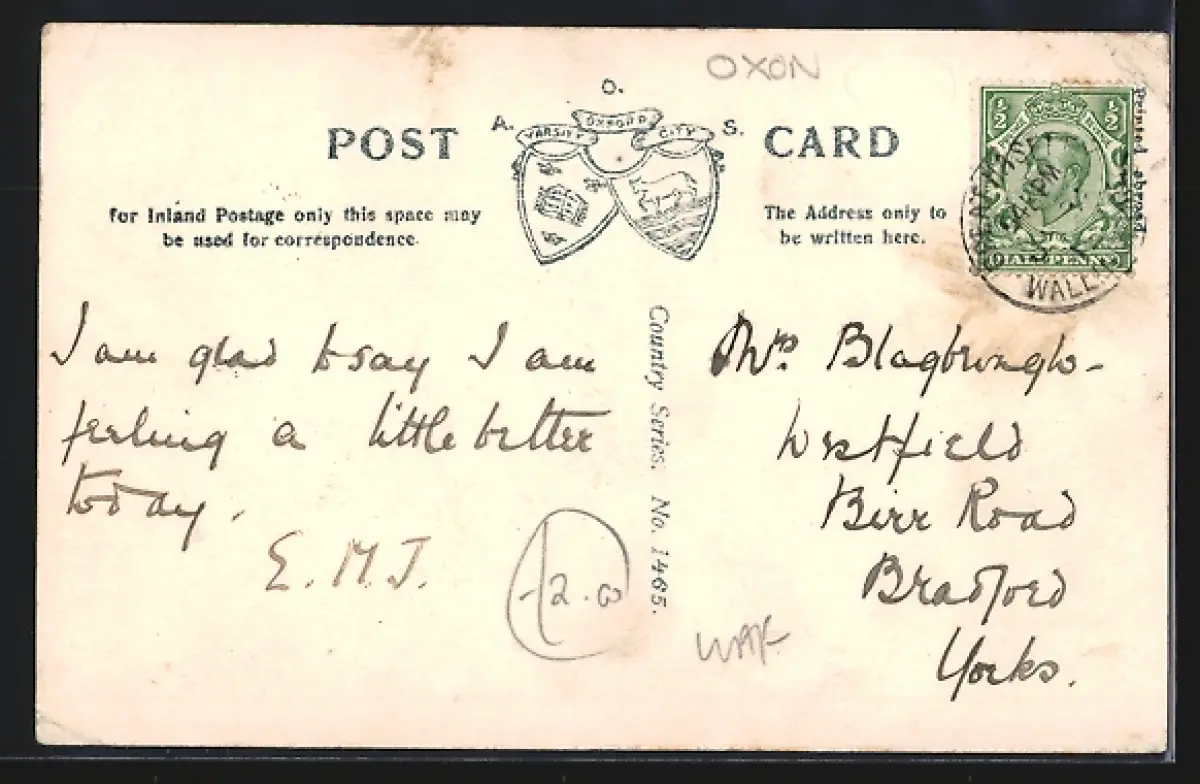 OXON
A. O. S.
VARSITY OXFORD CITY
POST CARD
For Inland Postage only this space may
be used for correspondence.
The Address only to
be written here.
½ ½
HALFPENNY
WALL
Printed abroad.
I am glad to say I am
feeling a little better
today.
E.M.J.
Country Series. No. 1465.
Mrs
Westfield
Birr Road
Bradford
Yorks.